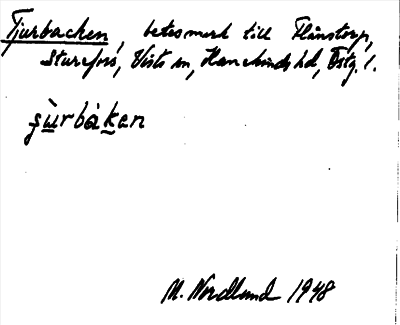 Tjurbacken, betesmark till Flinstorp,
Sturefors, Vists sn, Hanekinds hd, Östg. l.
ʂùrbàken
M. Nordlund 1948